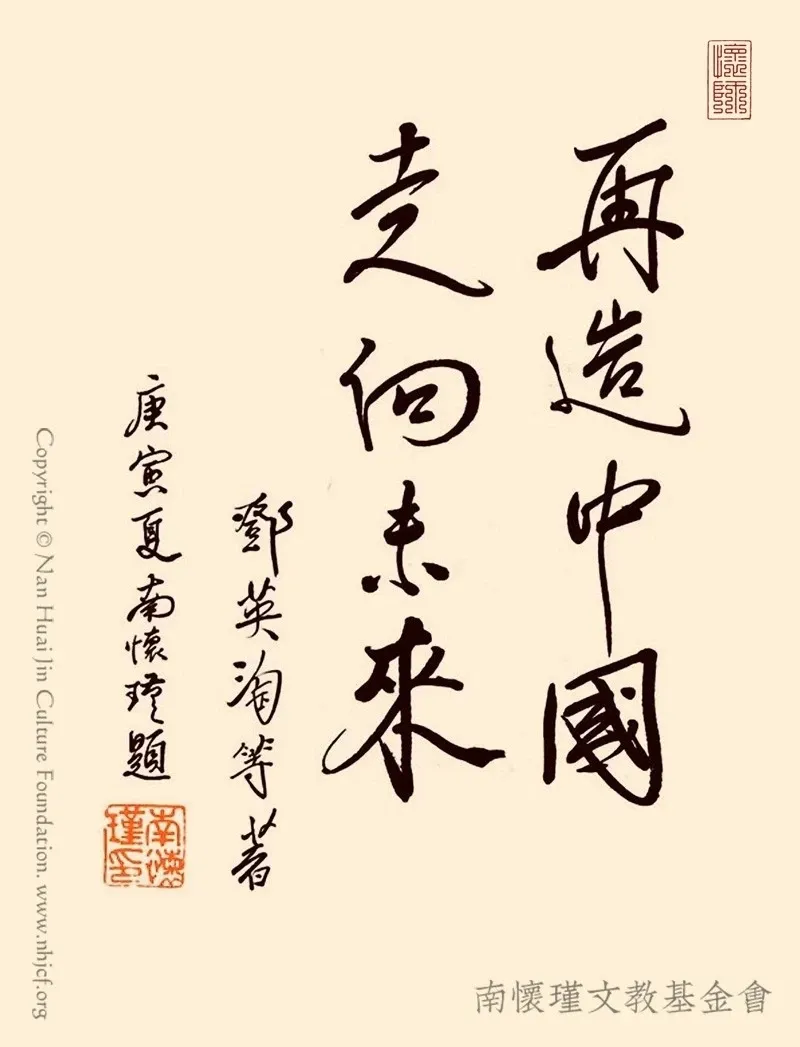 再造中國
走向未來
鄧英淘等著
庚寅夏南懷瑾題
南懷瑾印
懷師
Copyright © Nan Huai Jin Culture Foundation. www.nhjcf.org
南懷瑾文教基金會